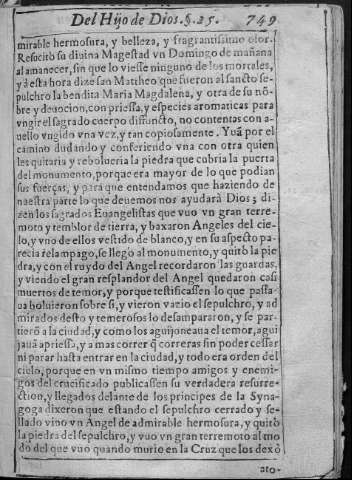 Del Hijo de Dios. §. 25. 749
mirable hermosura, y belleza, y fragrantissimo olor.
Resucitò su diuina Magestad vn Domingo de mañana
al amanecer, sin que lo viesse ninguno de los mortales,
y a esta hora dize san Mattheo que fueron al sancto se-
pulchro la bendita Maria Magdalena, y otra de su nõ-
bre y deuocion, con priessa, y especies aromaticas para
vngir el sagrado cuerpo diffuncto, no contentas con a-
uello vngido vna vez, y tan copiosamente. Yuã por el
camino dudando y confiriendo vna con otra quien
les quitaria y rebolueria la piedra que cubria la puerta
del monumento, porque era mayor de lo que podian
sus fuerças, y para que entendamos que haziendo de
nuestra parte lo que deuemos nos ayudarà Dios; di-
zen los sagrados Euangelistas que vuo vn gran terre-
moto y temblor de tierra, y baxaron Angeles del cie-
lo, y vno de ellos vestido de blanco, y en su aspecto pa-
recia relampago, se llegò al monumento, y quitò la pie
dra, y con el ruydo del Angel recordaron las guardas,
y viendo el gran resplandor del Angel quedaron casi
muertos de temor, y porque testificassen lo que passa-
ua boluieron sobre si, y vieron vazio el sepulchro, y ad
mirados desto y temerosos lo desampararon, y se par-
tierõ a la ciudad, y como los aguijoneaua el temor, agui
jauã apriessa, y a mas correr q̃ correras sin poder cessar
ni parar hasta entrar en la ciudad, y todo era orden del
cielo, porque en vn mismo tiempo amigos y enemi-
gos del crucificado publicassen su verdadera resurre-
ction, y llegados delante de los principes de la Syna-
goga dixeron que estando el sepulchro cerrado y se-
llado vino vn Angel de admirable hermosura, y quitò
la piedra del sepulchro, y vuo vn gran terremoto al mo
do del que vuo quando murio en la Cruz que los dexò
ato-